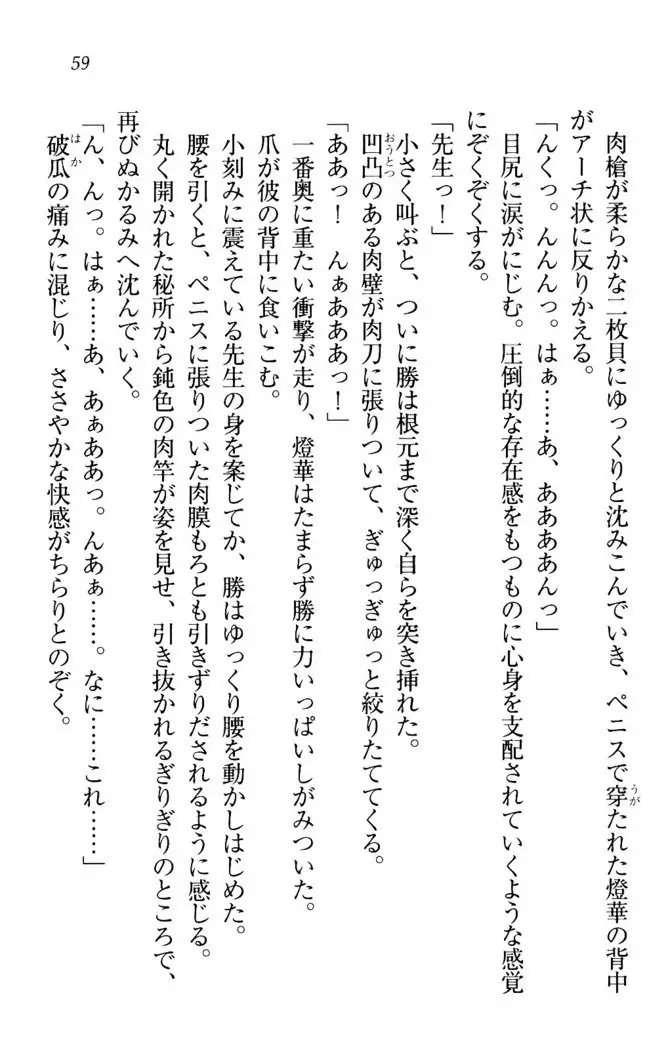 59
肉槍が柔らかな二枚貝にゆっくりと沈みこんでいき、ペニスで穿たれた燈華の背中
がアーチ状に反りかえる。
「んくっ。んんんっ。はぁ……あ、ああああんっ」
目尻に涙がにじむ。圧倒的な存在感をもつものに心身を支配されていくような感覚
にぞくぞくする。
「先生っ！」
小さく叫ぶと、ついに勝は根元まで深く自らを突き挿れた。
凹凸のある肉壁が肉刀に張りついて、ぎゅっぎゅっと絞りたててくる。
「ああっ！　んぁあああっ！」
一番奥に重たい衝撃が走り、燈華はたまらず勝に力いっぱいしがみついた。
爪が彼の背中に食いこむ。
小刻みに震えている先生の身を案じてか、勝はゆっくり腰を動かしはじめた。
腰を引くと、ペニスに張りついた肉膜もろとも引きずりだされるように感じる。
丸く開かれた秘所から鈍色の肉竿が姿を見せ、引き抜かれるぎりぎりのところで、
再びぬかるみへ沈んでいく。
「ん、んっ。はぁ……あ、あぁああっ。んあぁ……。なに……これ……」
破瓜の痛みに混じり、ささやかな快感がちらりとのぞく。